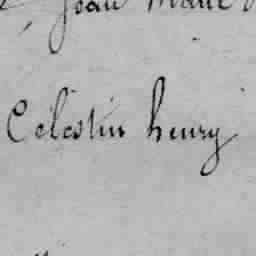 Jean Marie
Celestin henry